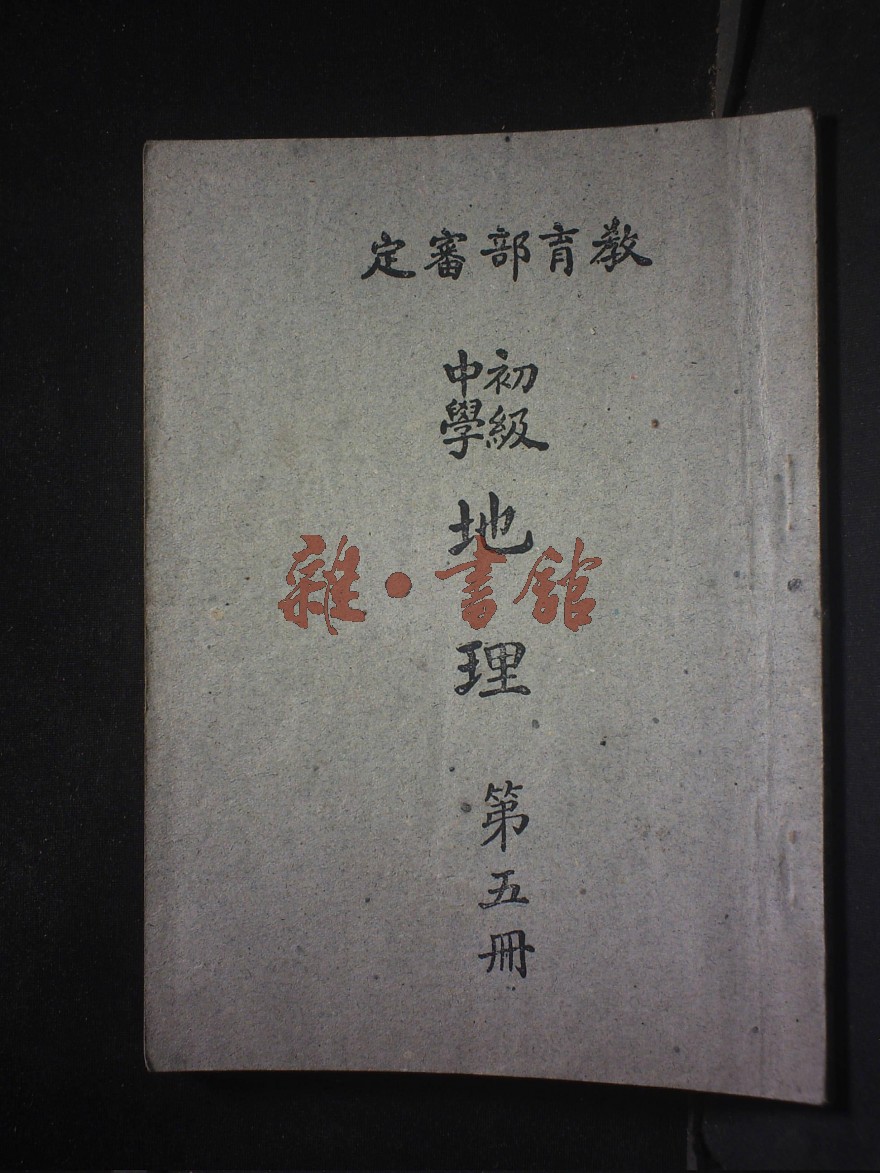 教育部審定
初級
中學
地理
第五冊
雜•書館